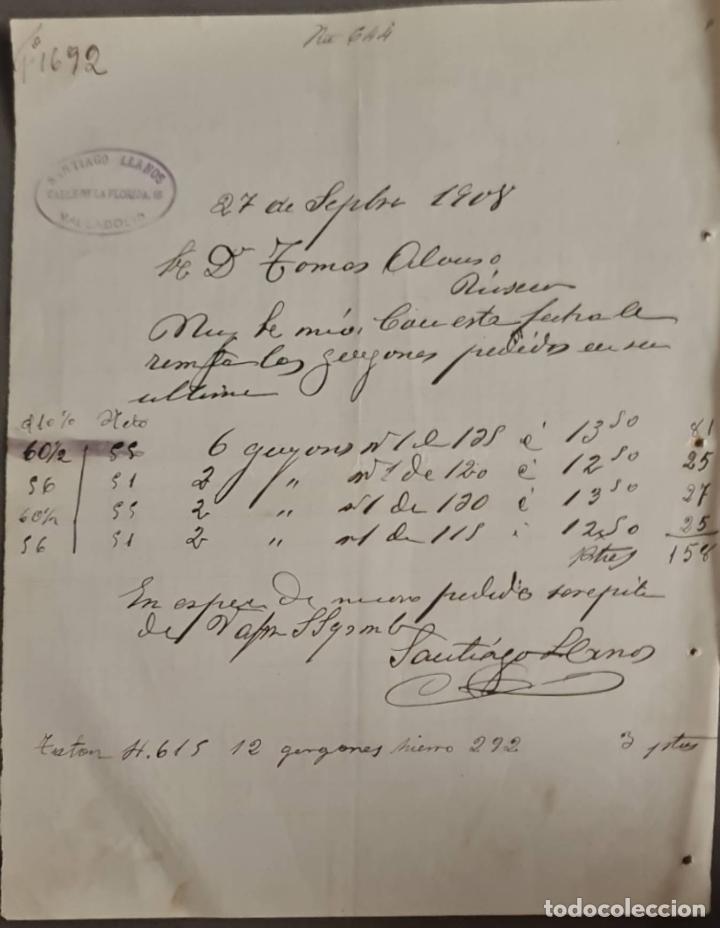 Nº 644
1692
SANTIAGO LLANOS
CALLE DE LA FLORIDA, 15
VALLADOLID
27 de Sepbre 1908
Sr Dn Tomas Alonso
Rioseco
Muy Sr mio: Con esta fecha le
remito los gergones pedidos en su
ultima
10% Neto
60½ 55 6 gergons nº 1 de 135 á 13 50 81
56 51 2 " nº 1 de 120 á 12 50 25
60½ 55 2 " nº 1 de 130 á 13 50 27
56 51 2 " nº 1 de 115 12,50 25
Ptas 158
En espera de nuevo pedido se repite
de Vd
Santiago Llanos
H. 615 12 gergones hierro 292 3 ptas
todocoleccion.net